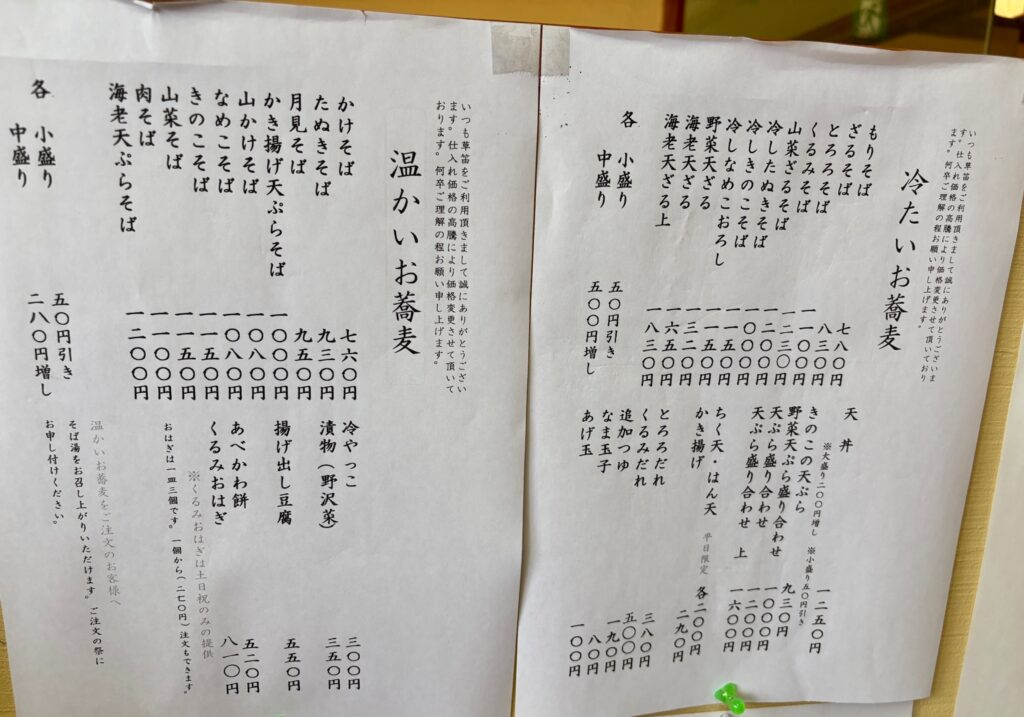 いつも草笛をご利用頂きまして誠にありがとうございま
す。仕入れ価格の高騰により価格変更させて頂いており
ます。何卒ご理解の程お願い申し上げます。
冷たいお蕎麦
もりそば 七八〇円
ざるそば 八三〇円
とろろそば 一一〇〇円
くるみそば 一二三〇円
山菜ざるそば 一二〇〇円
冷したぬきそば 一〇〇〇円
冷しきのこそば 一一五〇円
冷しなめこおろし 一一五〇円
野菜天ざる 一三二〇円
海老天ざる 一六五〇円
海老天ざる上 一八三〇円
各 小盛り 五〇円引き
中盛り 五〇〇円増し
天丼 一二五〇円
※大盛り二〇〇円増し ※小盛り五〇円引き
きのこの天ぷら 九三〇円
野菜天ぷら盛り合わせ 一〇〇〇円
天ぷら盛り合わせ 一二〇〇円
天ぷら盛り合わせ 上 一六〇〇円
ちく天・はん天 平日限定 各二〇〇円
かき揚げ 二九〇円
とろろだれ 三八〇円
くるみだれ 五〇〇円
追加つゆ 一九〇円
なま玉子 八〇円
あげ玉 一〇〇円
いつも草笛をご利用頂きまして誠にありがとうござい
ます。仕入れ価格の高騰により価格変更させて頂いて
おります。何卒ご理解の程お願い申し上げます。
温かいお蕎麦
かけそば 七六〇円
たぬきそば 九三〇円
月見そば 九五〇円
かき揚げ天ぷらそば 一〇〇〇円
山かけそば 一〇八〇円
なめこそば 一〇八〇円
きのこそば 一一五〇円
山菜そば 一一五〇円
肉そば 一一〇〇円
海老天ぷらそば 一二〇〇円
各 小盛り 五〇円引き
中盛り 二八〇円増し
冷やっこ 三〇〇円
漬物(野沢菜) 三五〇円
揚げ出し豆腐 五五〇円
あべかわ餅 五二〇円
くるみおはぎ 八一〇円
※くるみおはぎは土日祝のみの提供
おはぎは一皿三個です。一個から(二七〇円)注文もできます。
温かいお蕎麦をご注文のお客様へ
そば湯をお召し上がりいただけます。ご注文の祭に
お申し付けください。